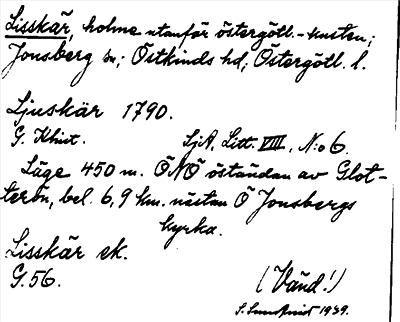 Lisskär, holme utanför östergötl.-kusten;
Jonsberg sn; Östkinds hd, Östergötl. l.
Ljuskär 1790.
G. Klint. SjA, Litt. VIII, N:o 6.
Läge 450 m. ÖNÖ öständan av Glot-
terön, bel. 6,9 km. nästan Ö Jonsbergs
kyrka.
Lisskär ek.
G.56. (Vänd!)
S. Sundqvist 1939.